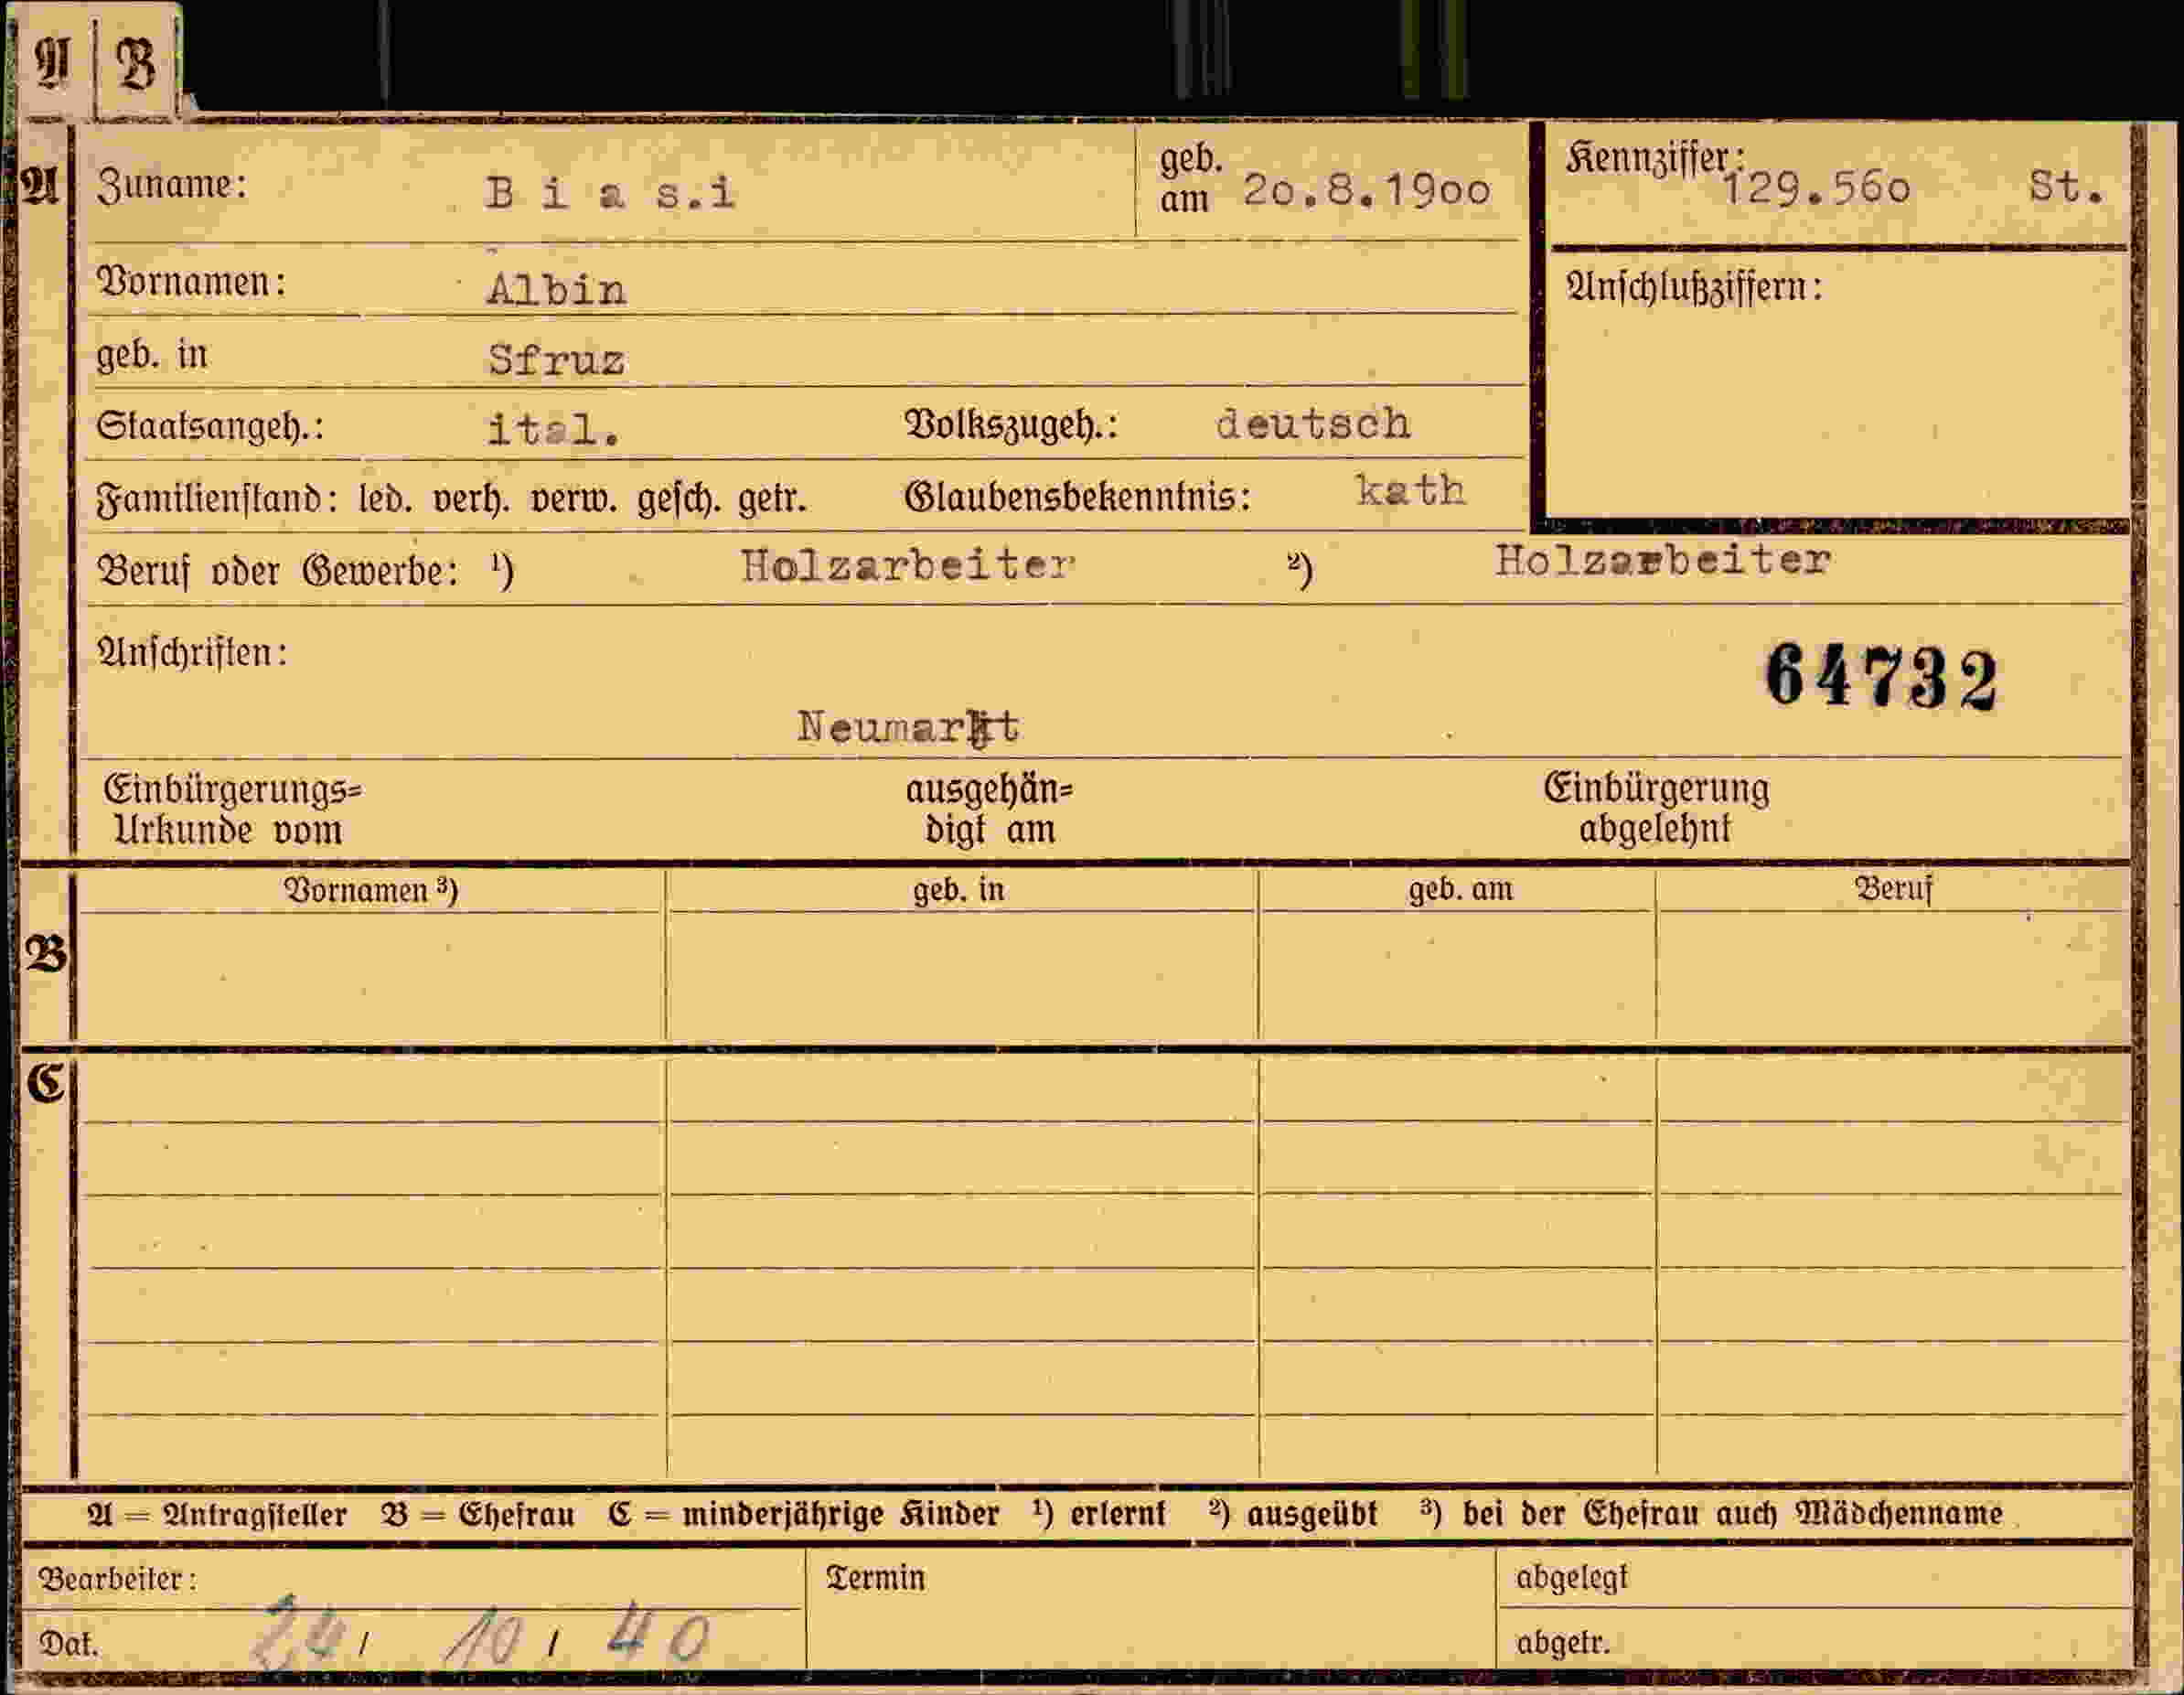 A B
A Zuname: B i a s.i geb. am 20.8.1900 Kennziffer: 129.560 St.
Vornamen: Albin Anschlußziffern:
geb. in Sfruz
Staatsangeh.: ital. Volkszugeh.: deutsch
Familienstand: led. verh. verw. gesch. getr. Glaubensbekenntnis: kath
Beruf oder Gewerbe: ¹) Holzarbeiter ²) Holzarbeiter
Anschriften:
64732
Neumarkt
Einbürgerungs= ausgehän= Einbürgerung
Urkunde vom digt am abgelehnt
Vornamen ³) geb. in geb. am Beruf
B
C
A = Antragsteller B = Ehefrau C = minderjährige Kinder ¹) erlernt ²) ausgeübt ³) bei der Ehefrau auch Mädchenname
Bearbeiter: Termin abgelegt
Dat. 24/ 10/ 40 abgetr.